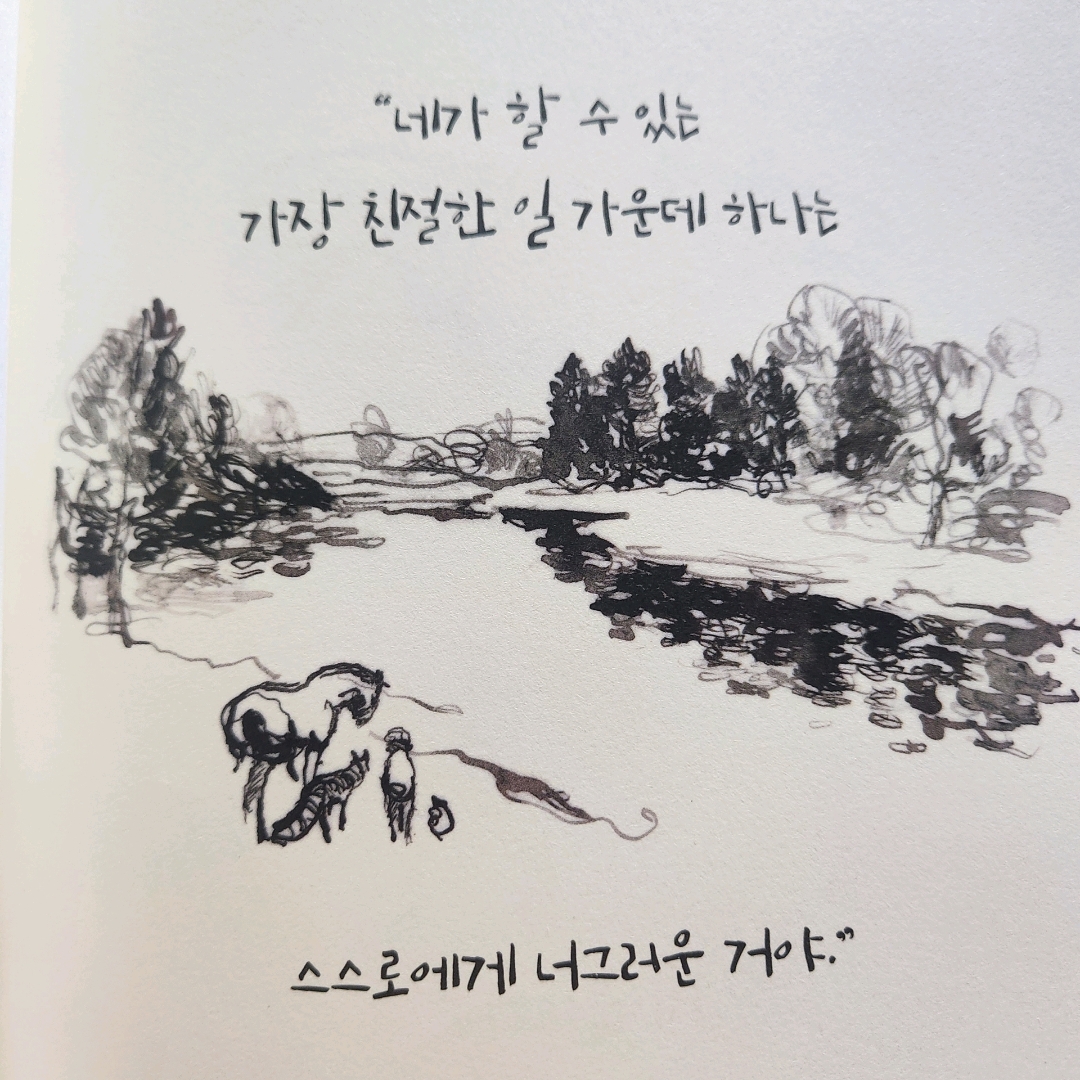 “네가 할 수 있는
가장 친절한 일 가운데 하나는
스스로에게 너그러운 거야.”